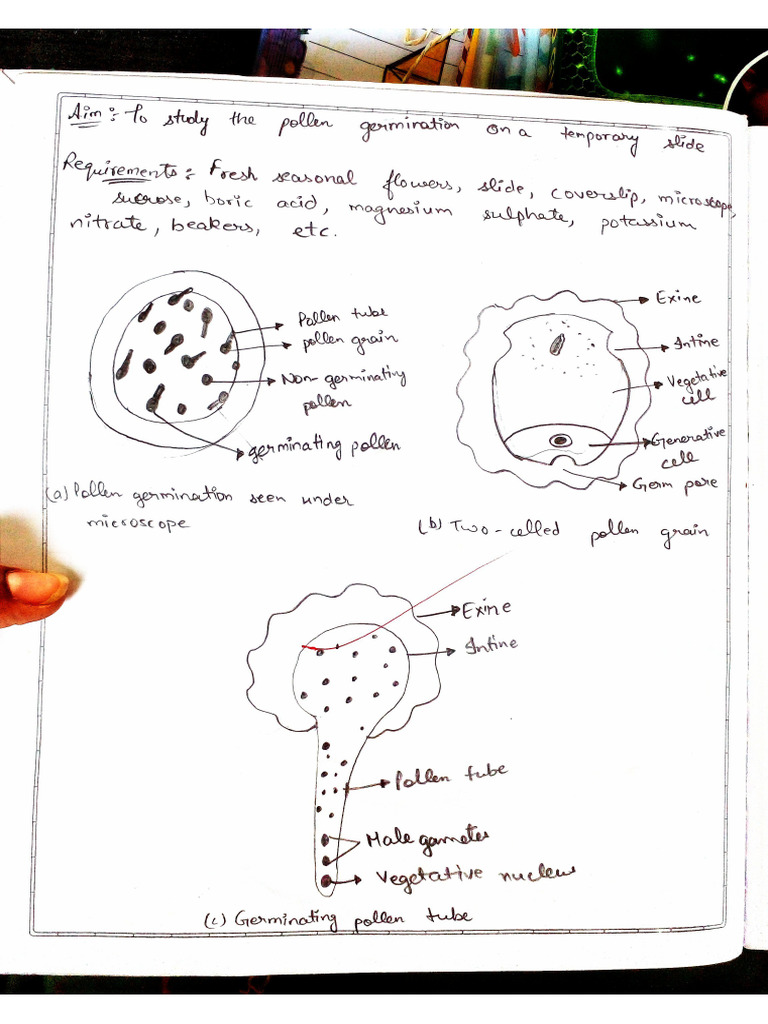 Aim:- To study the pollen germination on a temporary slide
Requirements:- Fresh seasonal flowers, slide, coverslip, microscope,
sucrose, boric acid, magnesium sulphate, potassium
nitrate, beakers, etc.
Pollen tube
pollen grain
Non-germinating
pollen
germinating pollen
(a) Pollen germination seen under
microscope
Exine
Intine
Vegetative
cell
Generative
cell
Germ pore
(b) Two-celled pollen grain
Exine
Intine
Pollen tube
Male gametes
Vegetative nucleus
(c) Germinating pollen tube